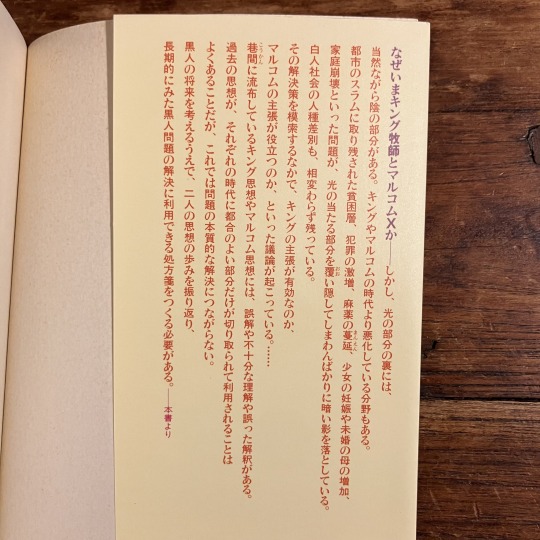 なぜいまキング牧師とマルコムXか――しかし、光の部分の裏には、
当然ながら陰の部分がある。キングやマルコムの時代より悪化している分野もある。
都市のスラムに取り残された貧困層、犯罪の激増、麻薬の蔓延、少女の妊娠や未婚の母の増加、
家庭崩壊といった問題が、光の当たる部分を覆い隠してしまわんばかりに暗い影を落としている。
白人社会の人種差別も、相変わらず残っている。
その解決策を模索するなかで、キングの主張が有効なのか、
マルコムの主張が役立つのか、といった議論が起こっている。……
巷間に流布しているキング思想やマルコム思想には、誤解や不十分な理解や誤った解釈がある。
過去の思想が、それぞれの時代に都合のよい部分だけが切り取られて利用されることは
よくあることだが、これでは問題の本質的な解決につながらない。
黒人の将来を考えるうえで、二人の思想の歩みを振り返り、
長期的にみた黒人問題の解決に利用できる処方箋をつくる必要がある。――本書より